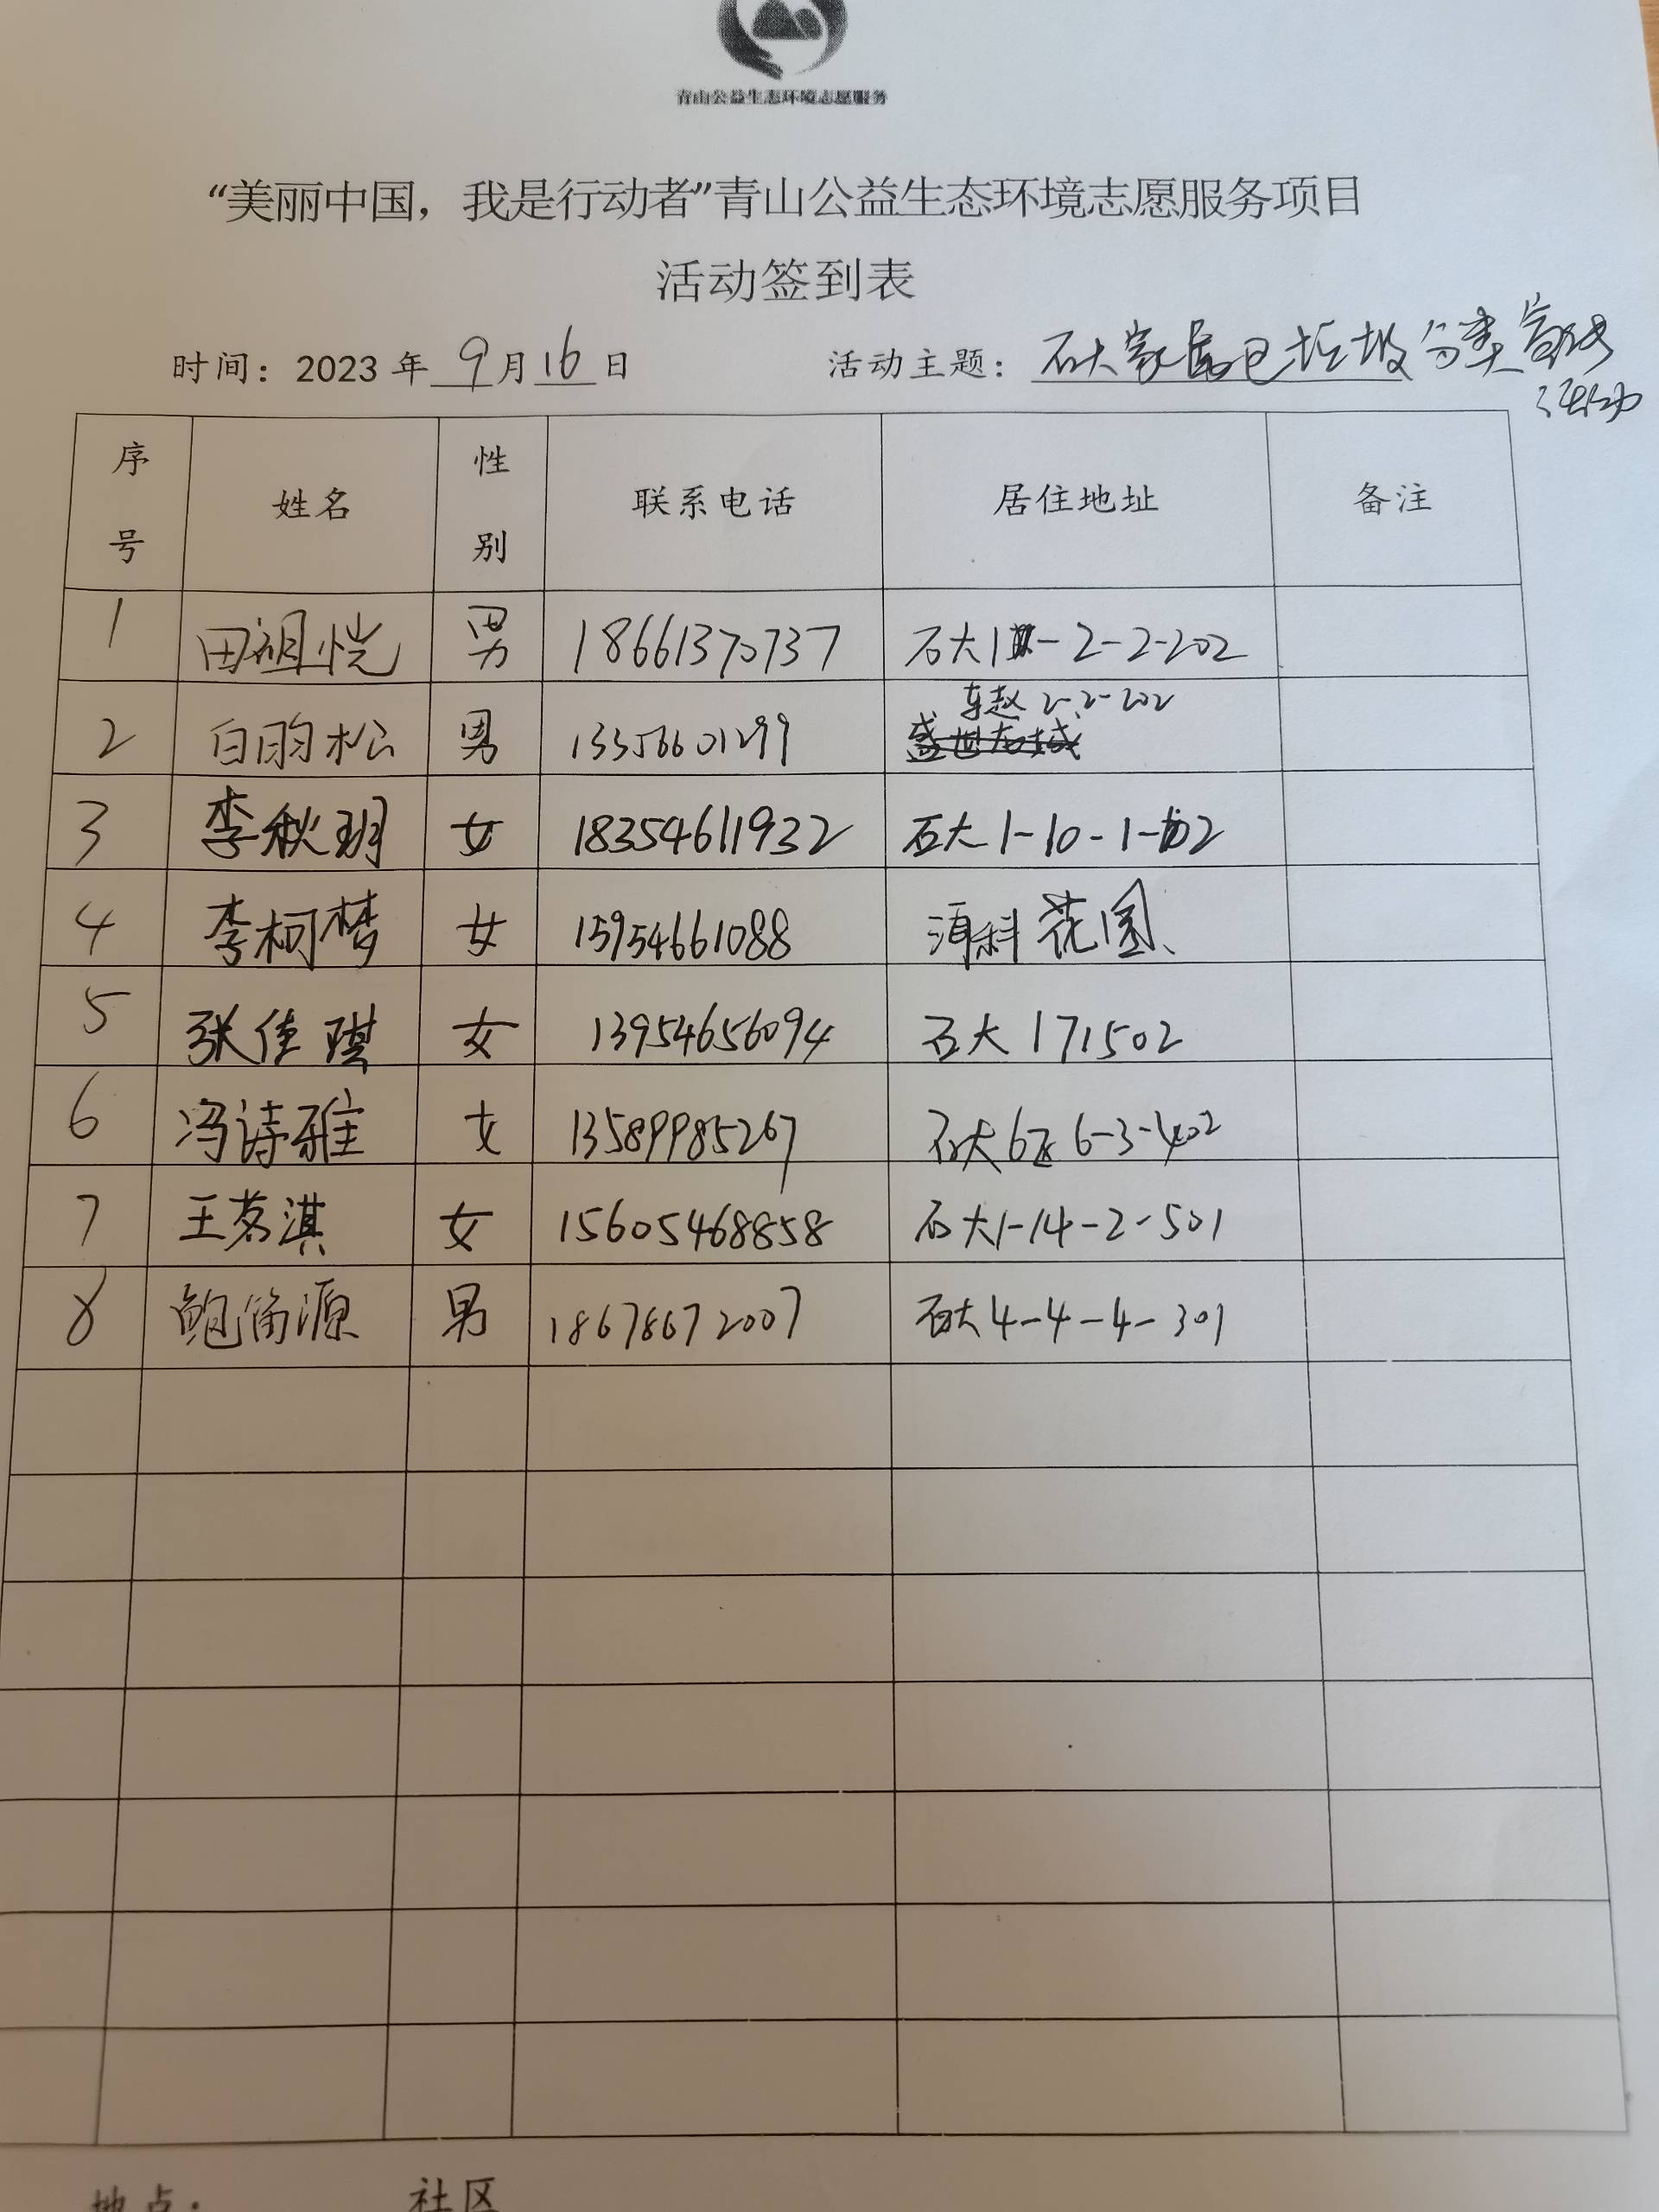 青山公益生态环境志愿服务
“美丽中国，我是行动者”青山公益生态环境志愿服务项目
活动签到表
时间：2023年 9月16日 活动主题：石大家属区垃圾分类宣传
活动
序号 姓名 性别 联系电话 居住地址 备注
1 田祖恺 男 18661370737 石大1-2-2-202
东赵2-2-202
2 白昀松 男 13356601299 盛世龙城
3 李秋玥 女 18354611932 石大1-10-1-102
4 李柯梦 女 15954661088 海科花园
5 张佳琪 女 13954656094 石大171502
6 冯诗雅 女 13589985267 石大6区6-3-402
7 王茗淇 女 15605468858 石大1-14-2-501
8 鲍 源 男 18678672007 石大4-4-4-301
地点： 社区